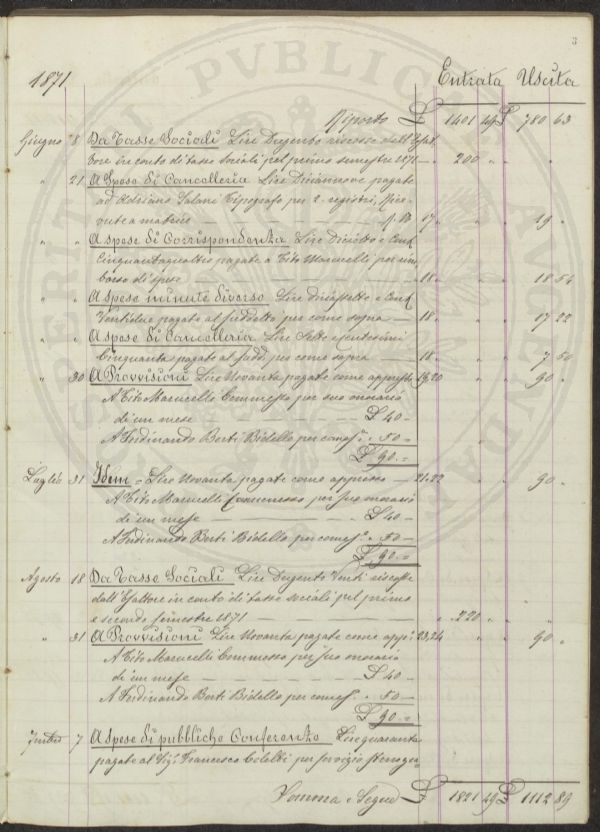 3
1871 Entrata Uscita
Riporto £ 1401 49 £ 780 63
Giugno 8 Da Tasse Sociali Lire Dugento riscosse dall'Esat-
tore in conto di tasse sociali pel primo semestre 1871 — " 200 " " "
" 21 A Spese di Cancelleria Lire Diciannove pagate
ad Adriano Salani Tipografo per 2 registri, Rice-
vute a matrice 17 " " 19 "
" " A spese di Corrispondenza Lire Diciotto e Cent.
Cinquantaquattro pagate a Tito Marucelli per rim-
borso di spese — 18 " " 18 54
" " A spese minute diverse Lire Diciassette e Cent.
Ventidue pagate al suddetto per come sopra — 18 " " 17 22
" " A spese di Cancelleria Lire Sette e centesimi
Cinquanta pagate al sudd. per come sopra — 18 " " 7 50
" 30 A Provvisioni Lire Novanta pagate come appresso 19,20 " " 90 "
A Tito Marucelli Commesso per suo onorario
di un mese — £ 40 —
A Ferdinando Berti Bidello per come s.a " 50 —
£ 90 =
Luglio 31 Idem = Lire Novanta pagate come appresso — 21,22 " " 90 "
A Tito Marucelli Commesso per suo onorario
di un mese — £ 40 —
A Ferdinando Berti Bidello per come s.a " 50 —
£ 90 =
Agosto 18 Da Tasse Sociali Lire Dugento Venti riscosse
dall'Esattore in conto di tasse sociali pel primo
e secondo semestre 1871 — " 220 " " "
" 31 A Provvisioni Lire Novanta pagate come app.o 23,24 " " 90 "
A Tito Marucelli Commesso per suo onorario
di un mese — £ 40 —
A Ferdinando Berti Bidello per come s.a " 50 —
£ 90 =
7 A spese di pubbliche Conferenze Lire quaranta
pagate al Sig. Francesco per servizio stenogra-
Somma e Segue £ 1821 49 £ 1112 89